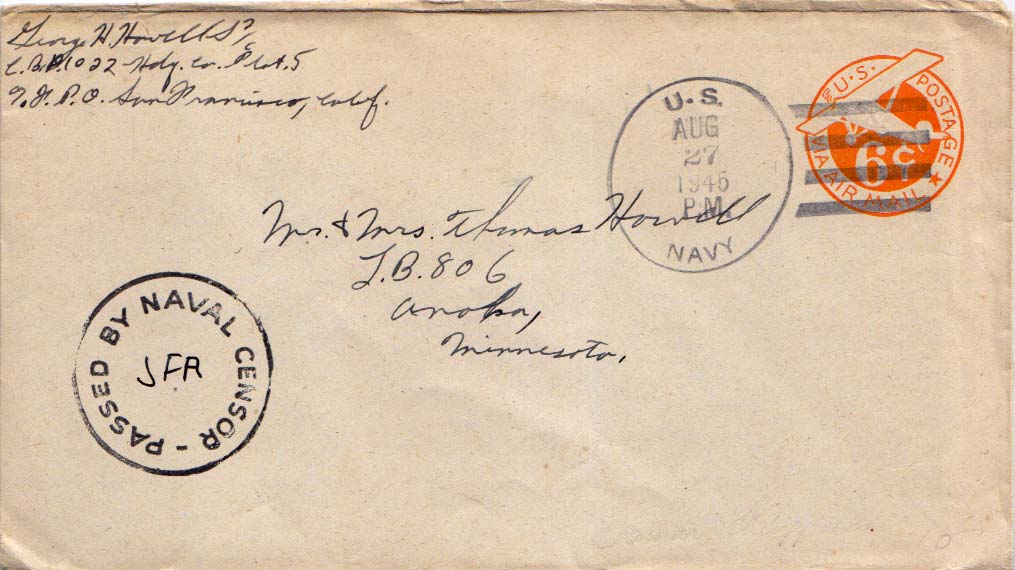 George H. Howell S 1/c
C.B.D. 1022 Hdq. Co. Plat. 5
F.P.O. San Francisco, Calif.
U.S.
AUG
27
1945
P.M.
NAVY
U.S. POSTAGE
6¢
VIA AIR MAIL
Mr. & Mrs. Thomas Howell
L.B. 806
Anoka,
Minnesota.
PASSED BY NAVAL CENSOR -
JFR